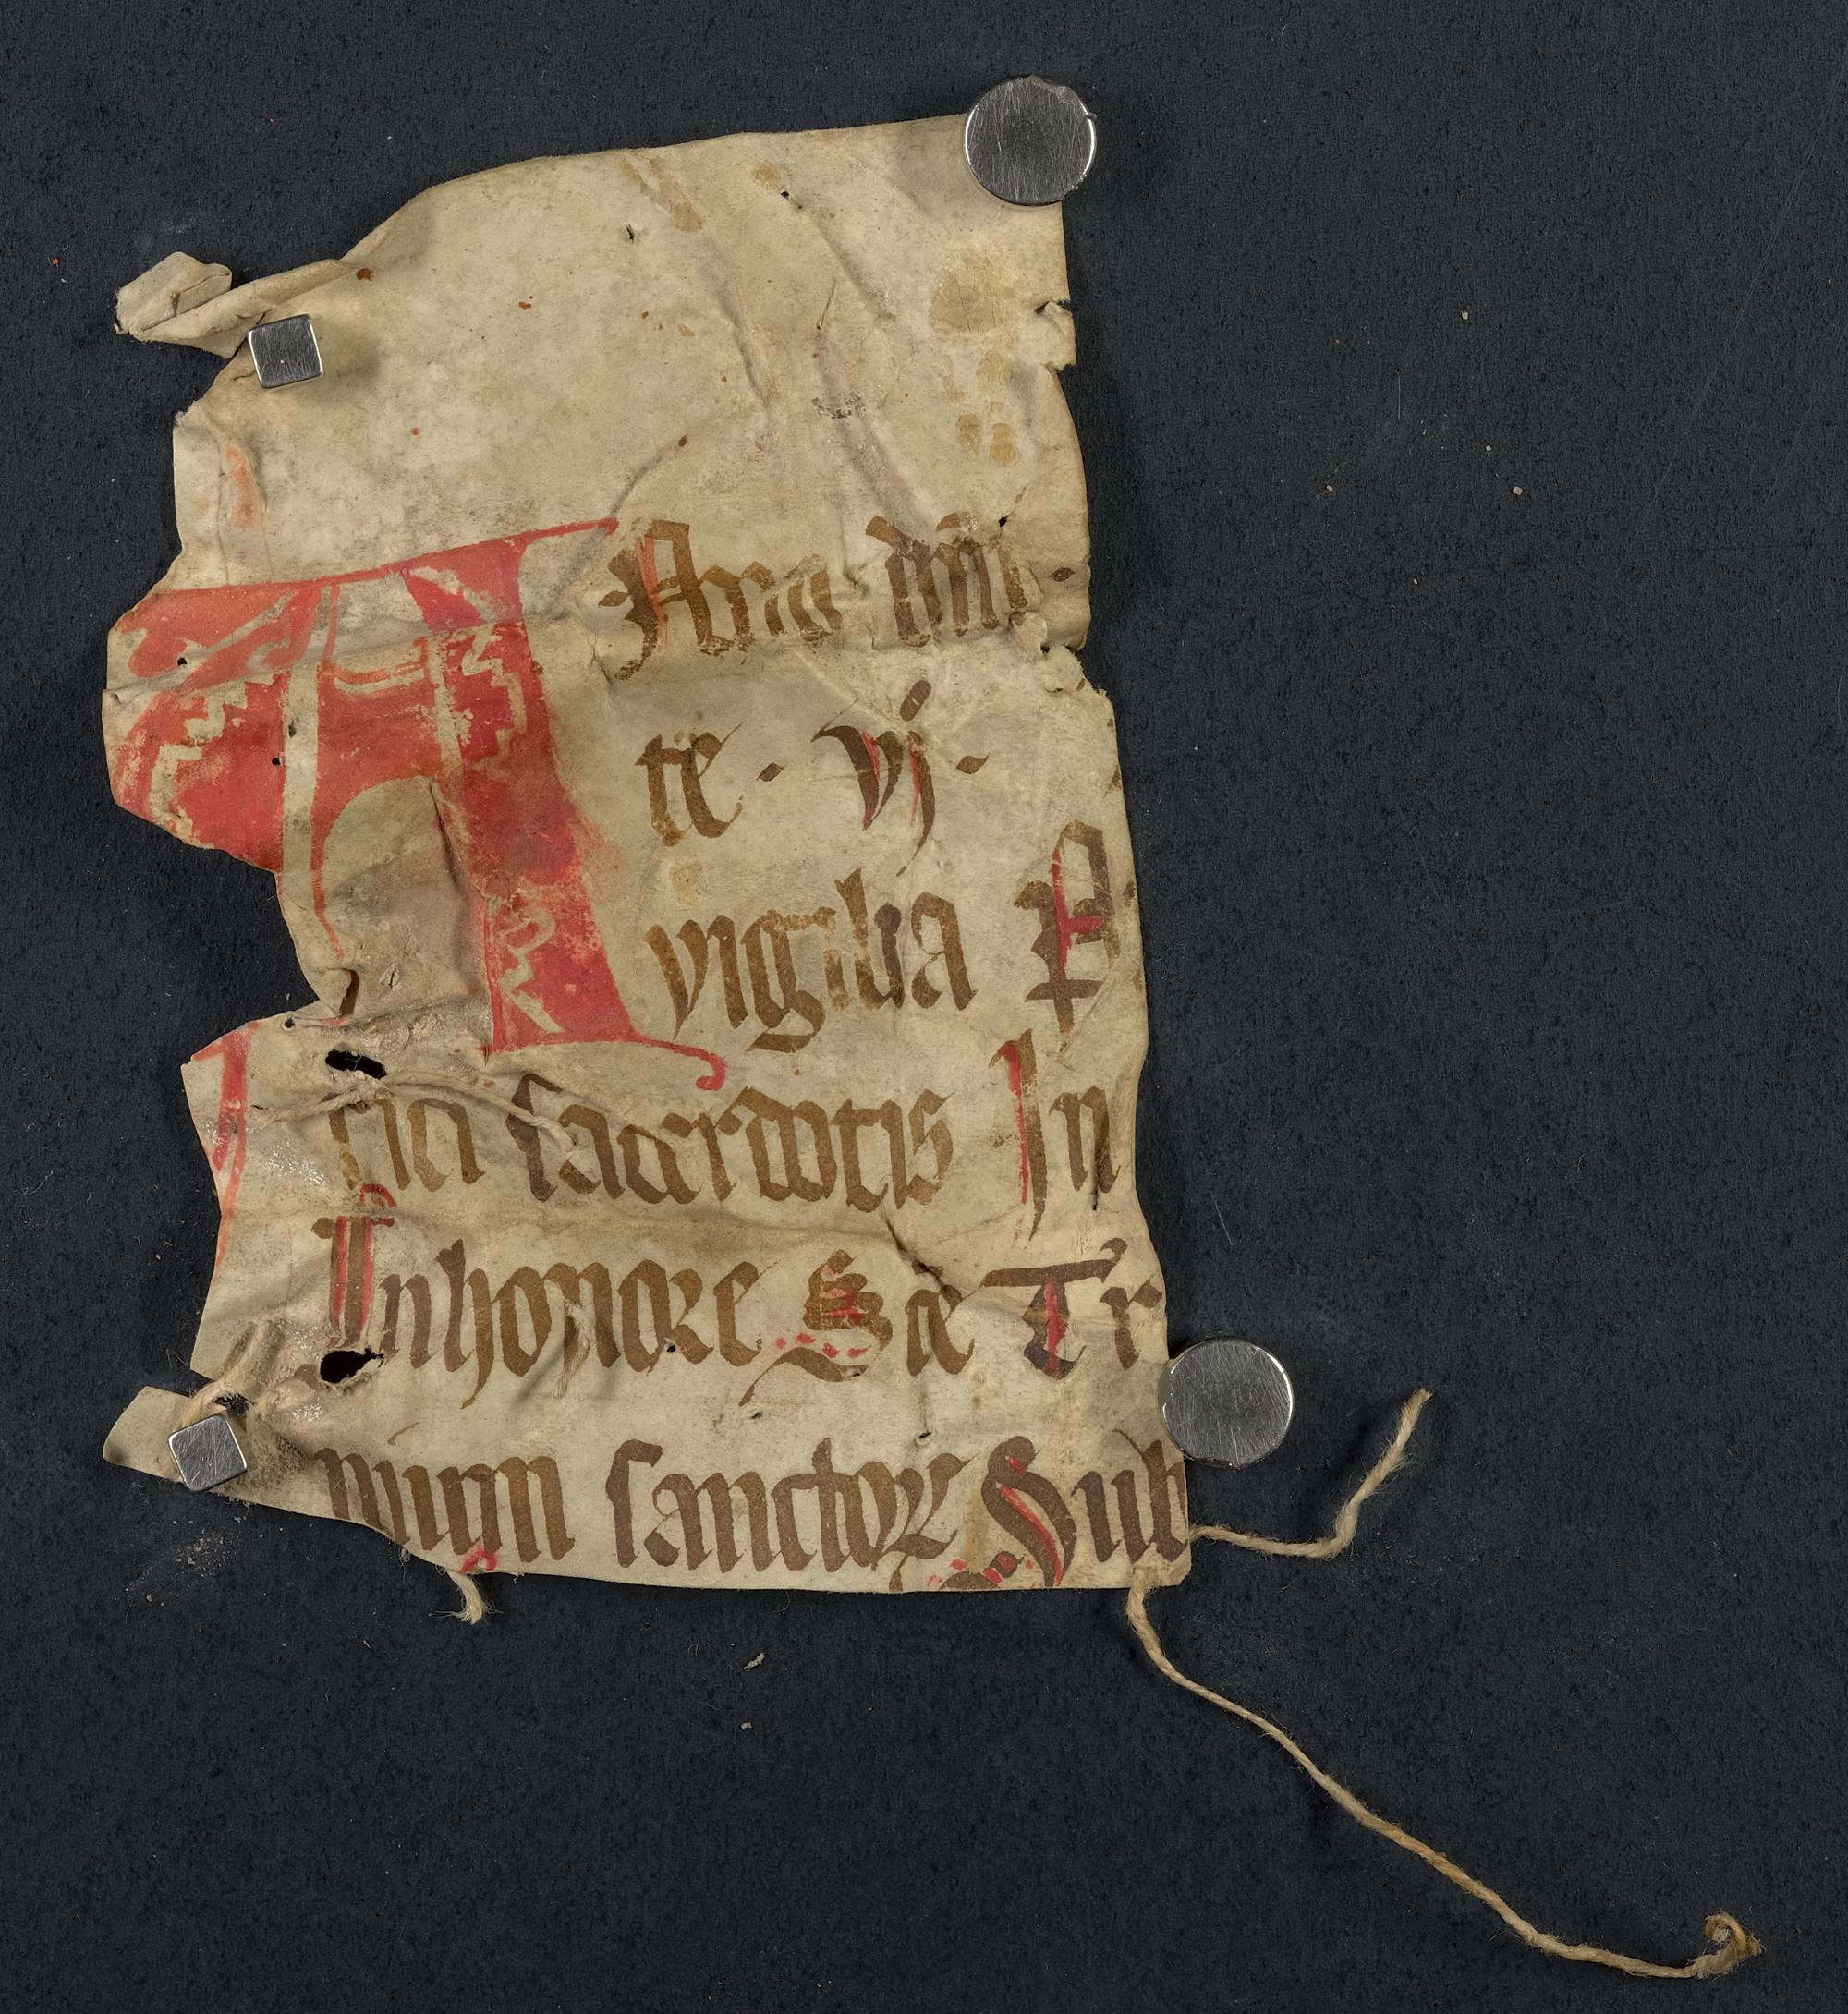 A Anno dñi
te · vj ·
vigilia P
rici sacerdotis In
In honore Sce Tr
nium sanctoꝝ Sub